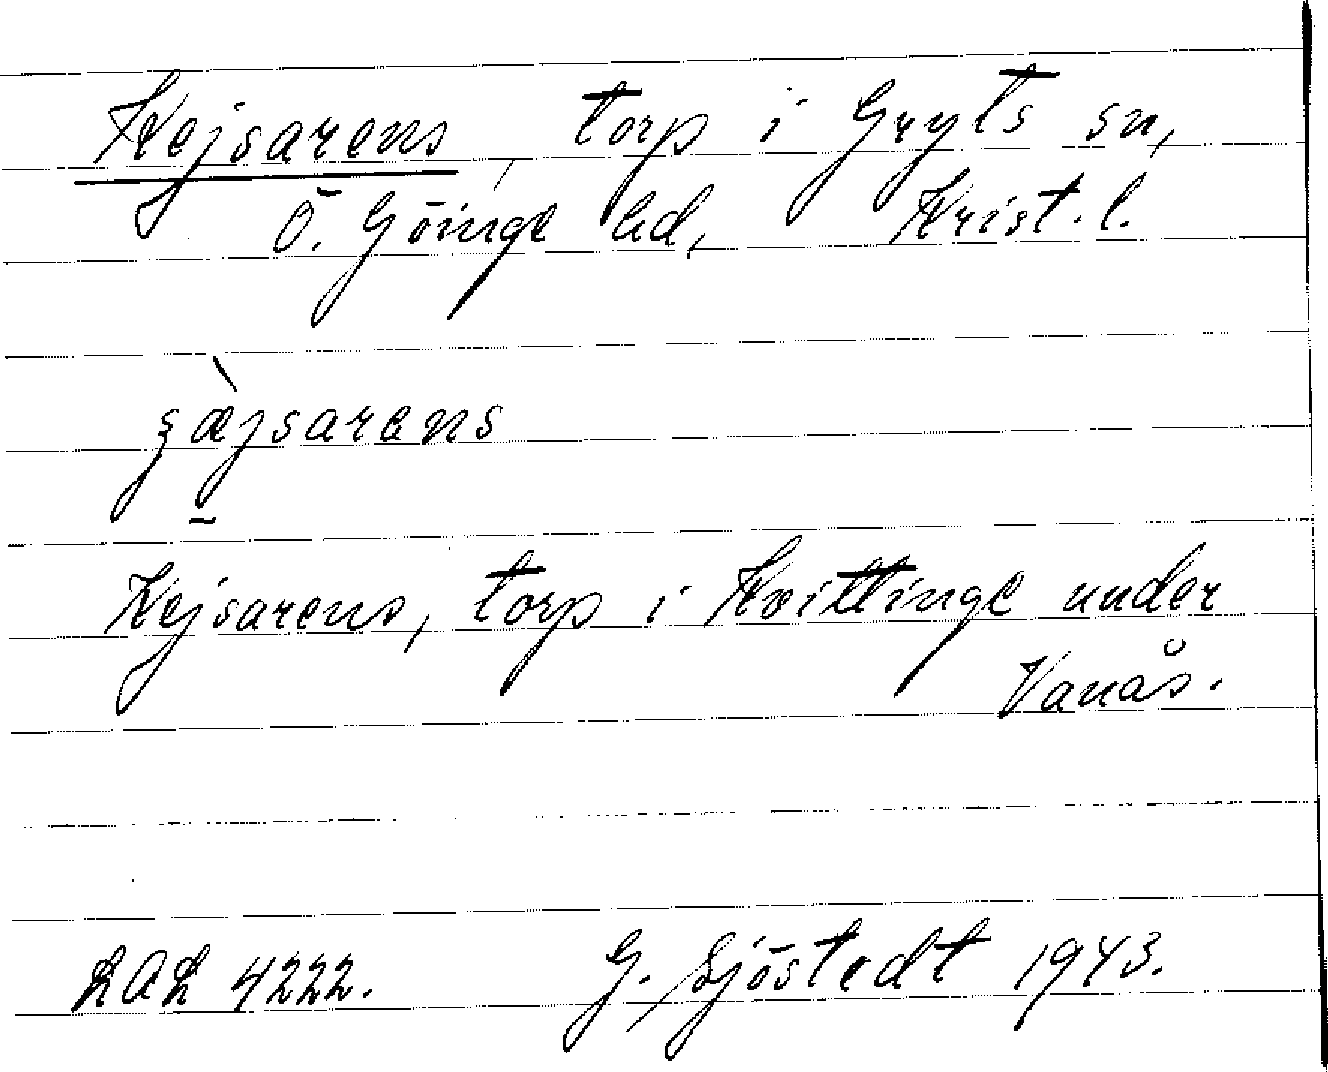 Kejsarens, torp i Gryts sn,
Ö. Göinge hd, Krist. l.
ȿæ̀jsarɐns
Kejsarens, torp i Kvittinge under
Vanås.
LAL 4222. G. Sjöstedt 1943.